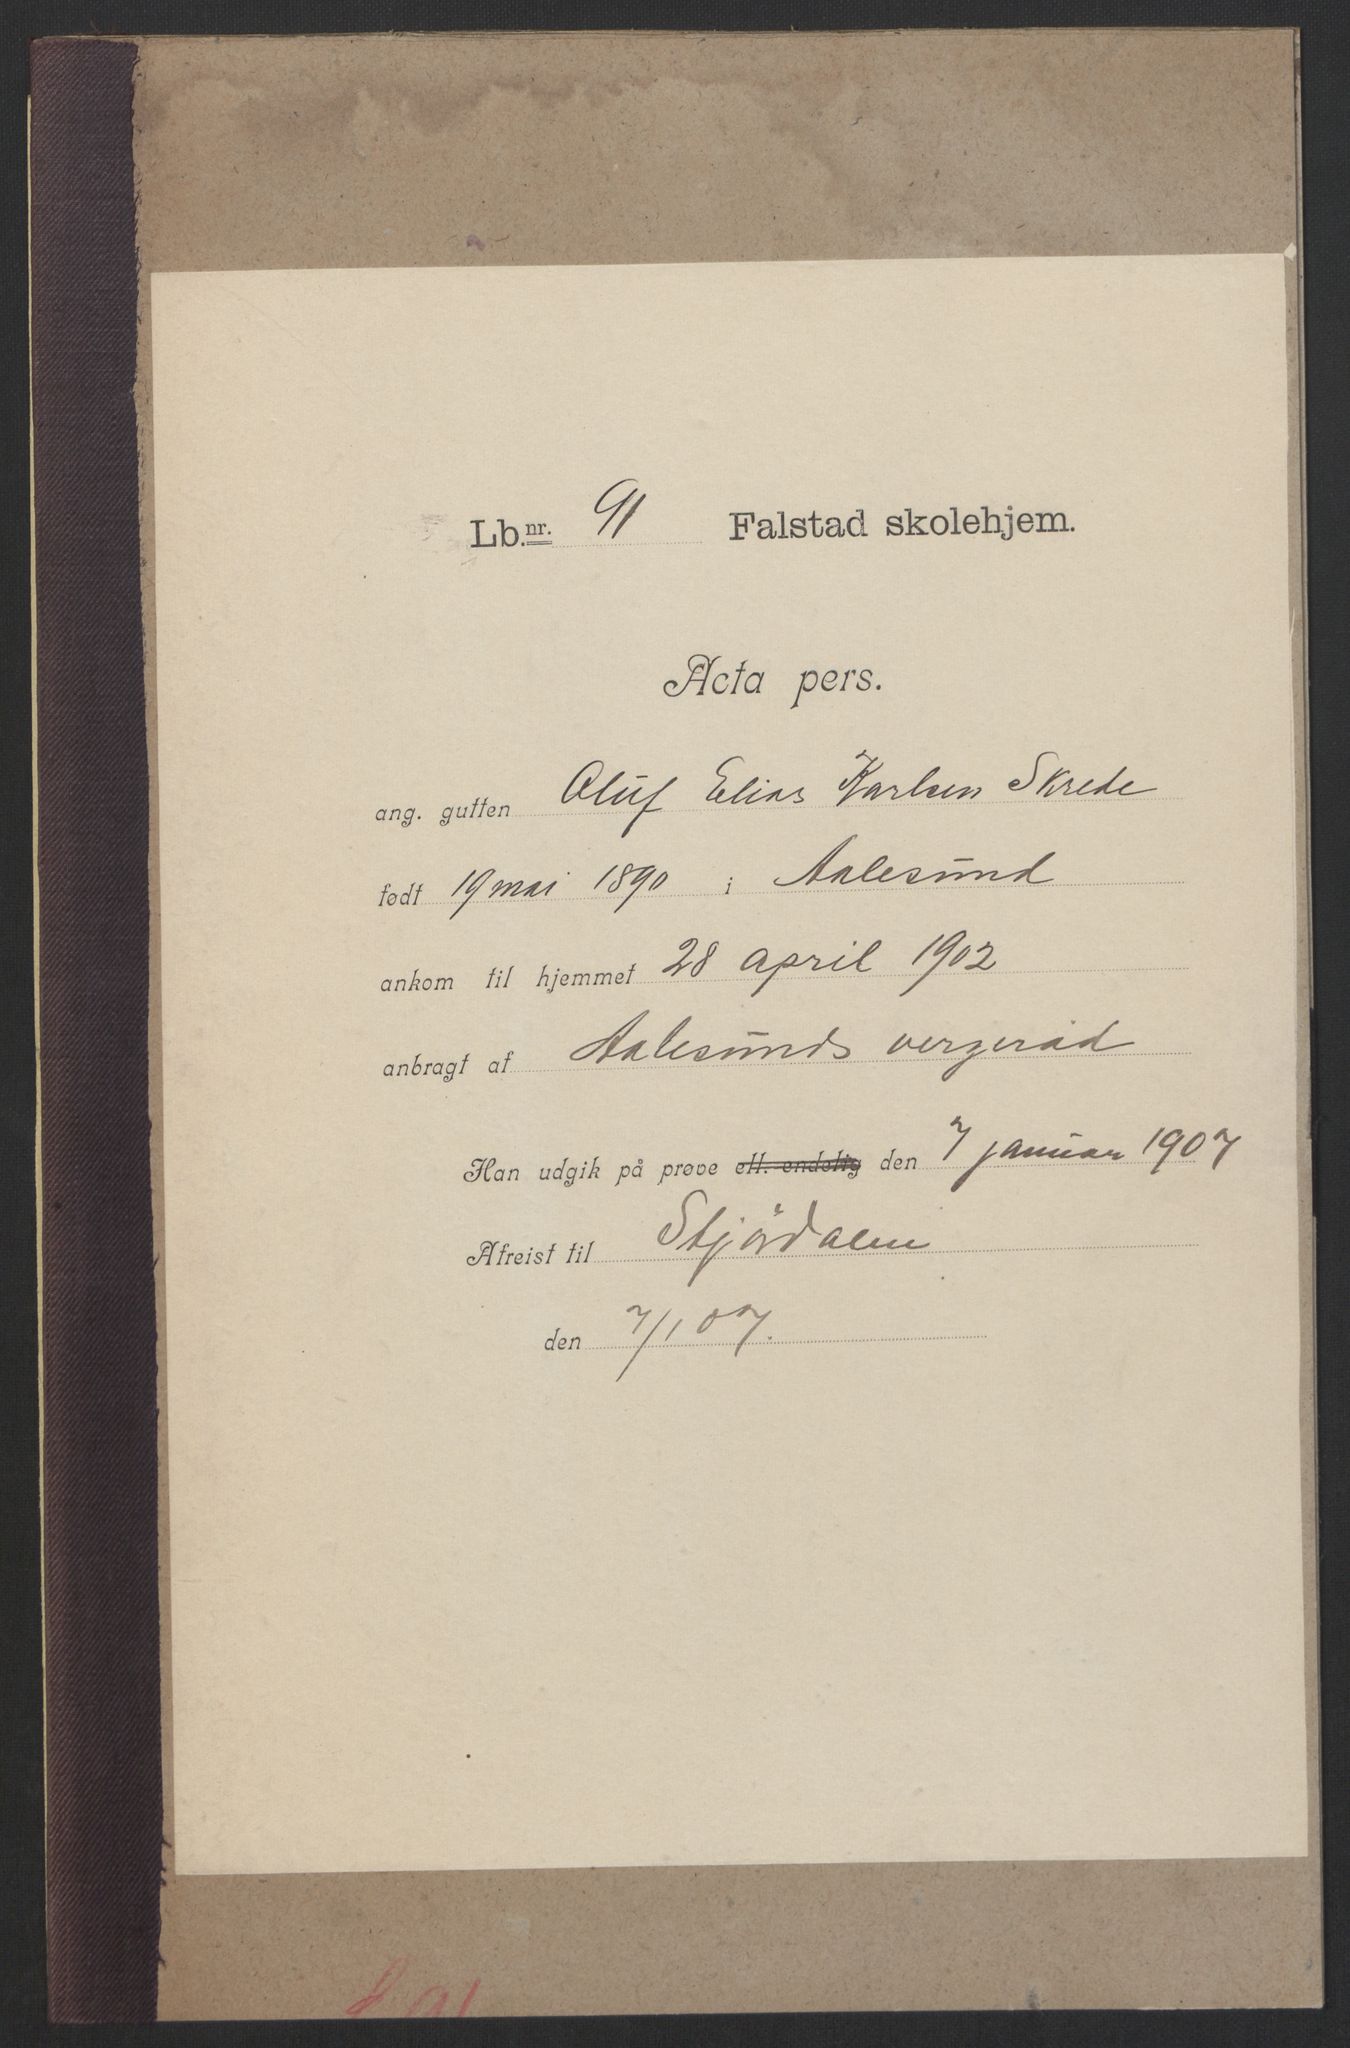 Lb.nr. 91 Falstad skolehjem.
Acta pers.
ang. gutten Oluf Elias Karlsen Skrede
født 19 mai 1890 i Aalesund
ankom til hjemmet 28 april 1902
anbragt af Aalesunds vergeråd
Han udgik på prøve ell. endelig den 7 januar 1907
Afreist til Stjördalen
den 7/1 07.